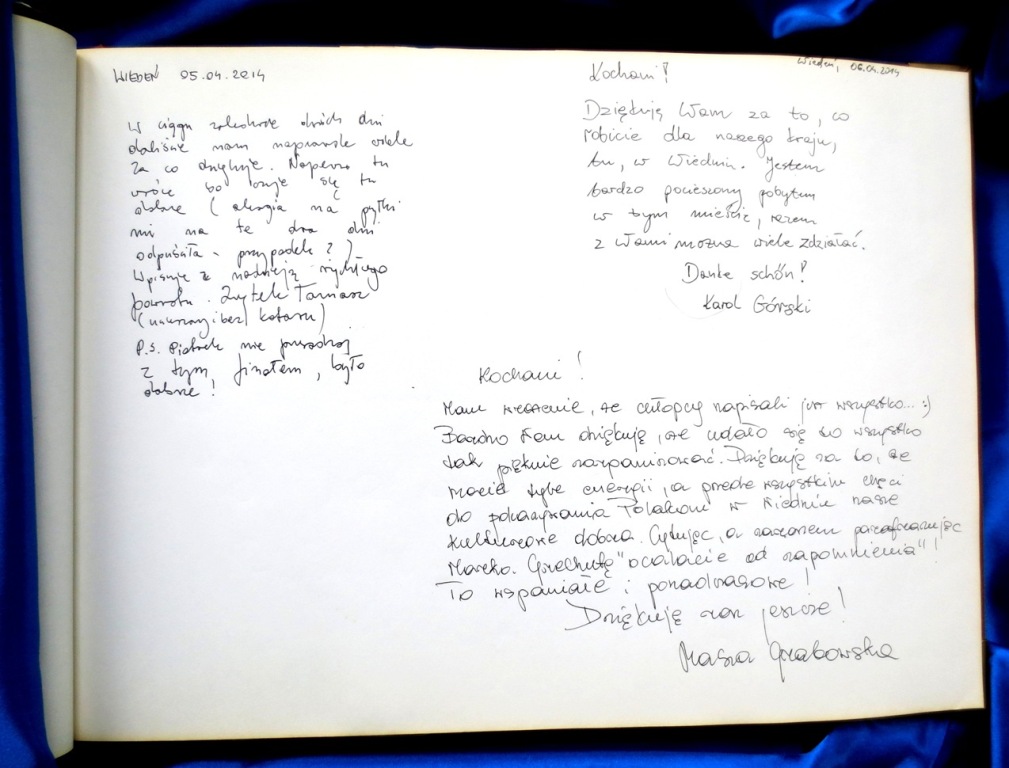 WIEDEŃ 05.04.2014
W ciągu zaledwie dwóch dni
daliście nam naprawdę wiele
za co dziękuję. Napewno tu
wrócę bo czuje się tu
dobrze (alergia na pyłki
mi na te dwa dni
odpuściła - przypadek?)
Wpisuje z nadzieją rychłego
powrotu. Tamasz
(i bez kataru)
P.S. nie przesadzaj
z tym finałem, było
dobrze!
Wiedeń, 06.04.2014
Kochani!
Dziękuję Wam za to, co
robicie dla naszego kraju,
tu, w Wiedniu. Jestem
bardzo pocieszony pobytem
w tym mieście, razem
z Wami można wiele zdziałać.
Danke schön!
Karol Górski
Kochani!
Mam wrażenie, że chłopcy napisali już wszystko... :)
Bardzo Wam dziękuję, że udało się to wszystko
tak pięknie zorganizować. Dziękuję za to, że
macie tyle energii, a przede wszystkim chęci
do pokazywania Polakom w Wiedniu nasze
kulturowe dobra. Cytując, a zarazem parafrazując
Marka Grechutę "ocalacie od zapomnienia"!
To wspaniałe i ponadczasowe!
Dziękuję raz jeszcze!
Masza Grabowska